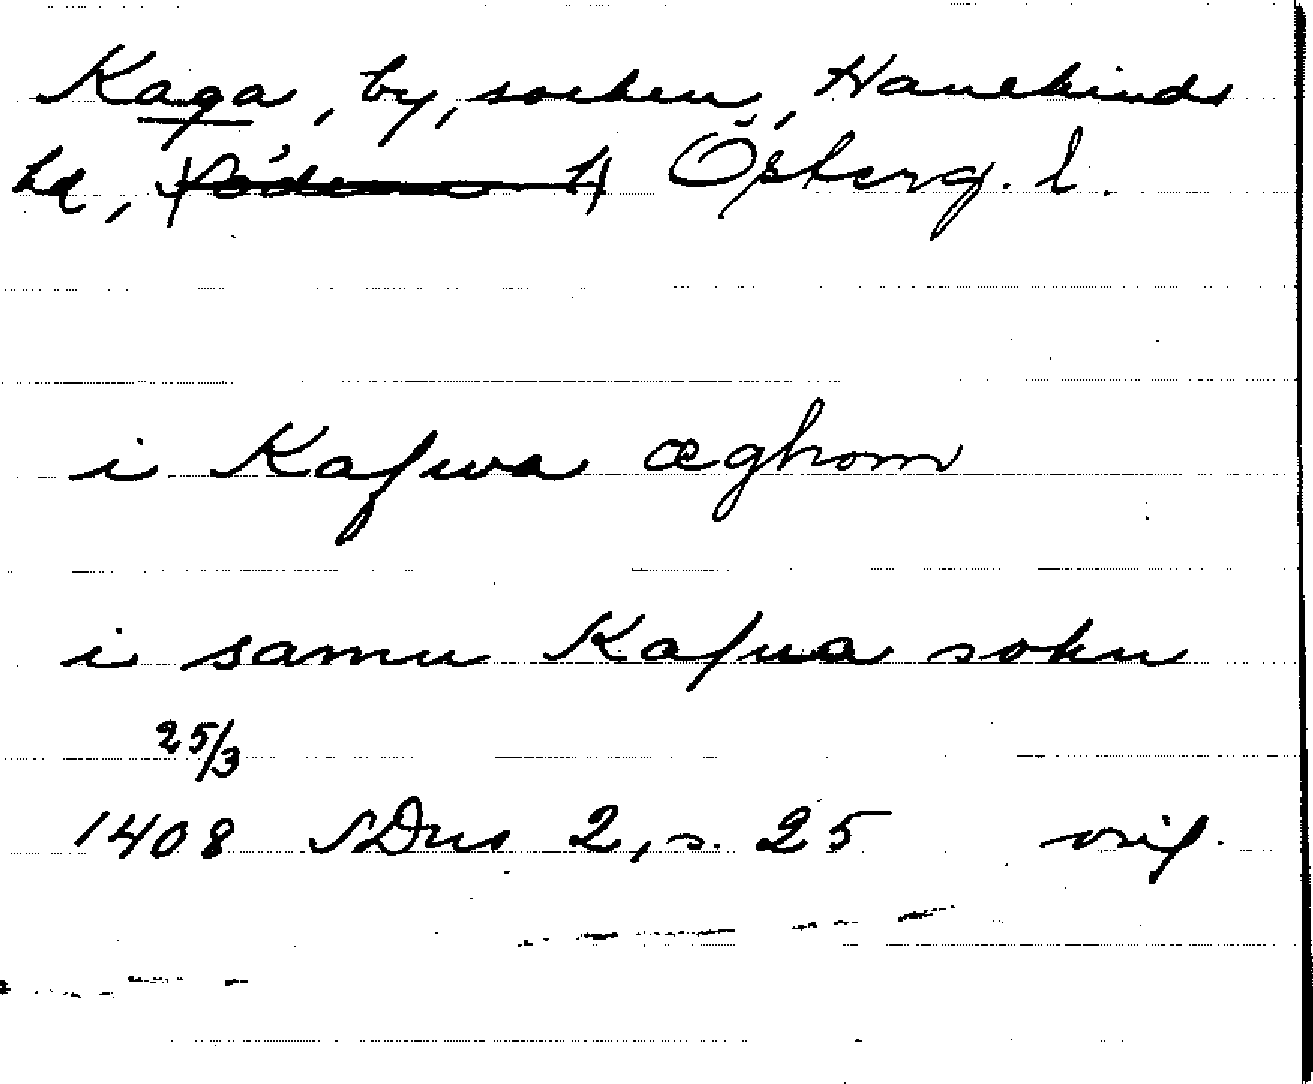 Kaga, by, socken, Hanekinds
hd, Österg. l.
i Kafwa æghom
i samu Kafua sokn
25/3
1408 SDns 2, s. 25 orig.